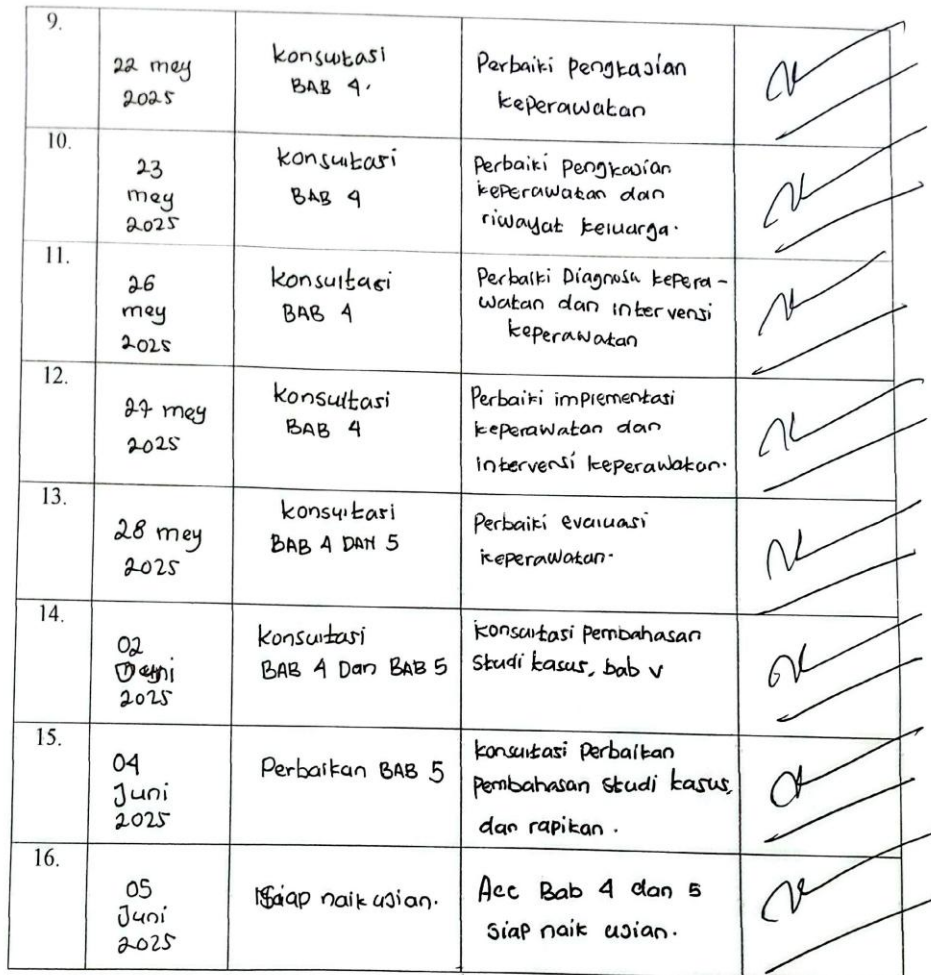 9.
22 mey
2025
konsultasi
BAB 4.
Perbaiki pengkajian
keperawatan
10.
23
mey
2025
konsultasi
BAB 4
Perbaiki pengkajian
keperawatan dan
riwayat keluarga.
11.
26
mey
2025
konsultasi
BAB 4
Perbaiki Diagnosa kepera-
watan dan intervensi
keperawatan
12.
27 mey
2025
konsultasi
BAB 4
Perbaiki implementasi
keperawatan dan
intervensi keperawatan.
13.
28 mey
2025
konsultasi
BAB 4 DAN 5
Perbaiki evaluasi
keperawatan.
14.
02
2025
konsultasi
BAB 4 Dan BAB 5
konsultasi pembahasan
studi kasus, bab v
15.
04
Juni
2025
Perbaikan BAB 5
konsultasi Perbaikan
pembahasan studi kasus,
dan rapikan.
16.
05
Juni
2025
Siap naik ujian.
Acc Bab 4 dan 5
siap naik ujian.